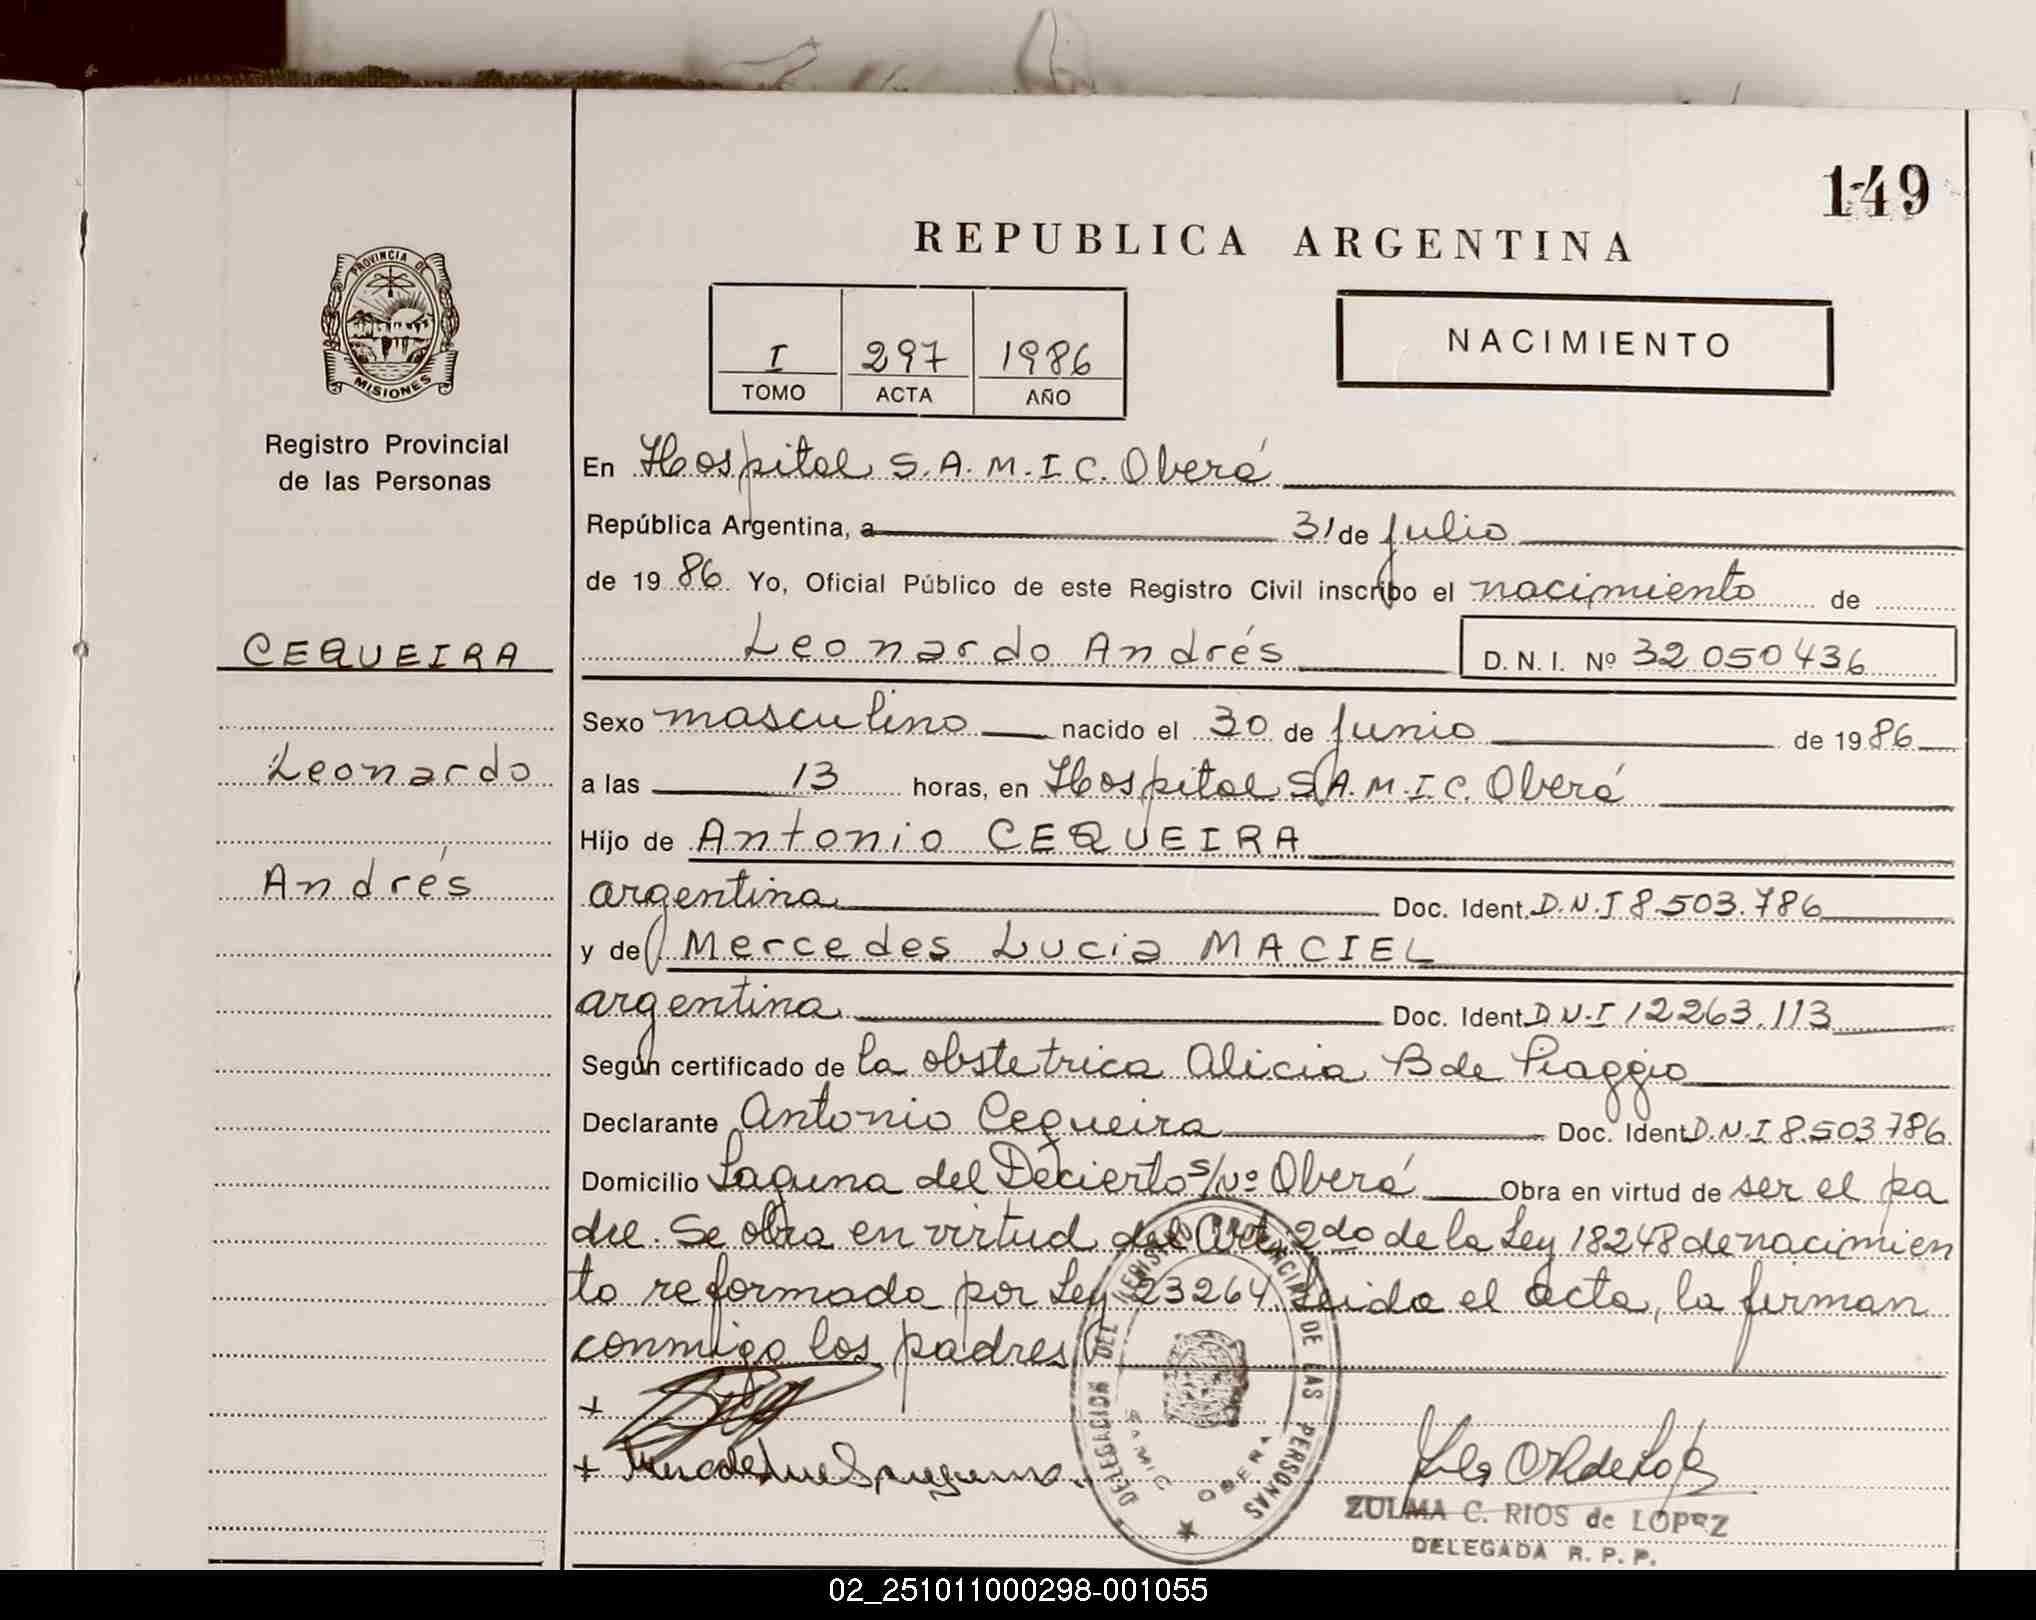 149
REPUBLICA ARGENTINA
PROVINCIA DE
MISIONES
Registro Provincial
de las Personas
I 297 1986
TOMO ACTA AÑO
NACIMIENTO
En Hospital S.A.M.I.C. Oberá
República Argentina, a 31 de julio
de 19 86. Yo, Oficial Público de este Registro Civil inscribo el nacimiento de
CEQUEIRA
Leonardo Andrés D.N.I. Nº 32 050 436
Sexo masculino nacido el 30 de junio de 19 86
Leonardo
a las 13 horas, en Hospital S.A.M.I.C. Oberá
Hijo de Antonio CEQUEIRA
Andrés
argentina Doc. Ident. D.N.I 8.503.786
y de Mercedes Lucia MACIEL
argentina Doc. Ident D.N.I 12263.113
Según certificado de la obstetrica Alicia B de Piaggio
Declarante Antonio Cequeira Doc. Ident D.N.I 8.503 786
Domicilio Laguna del Decierto s/Nº Oberá Obra en virtud de ser el pa
dre. Se obra en virtud del Art 2do de la Ley 18248 de nacimien
to reformada por Ley 23264. Leida el acta, la firman
conmigo los padres
+
+
DELEGACION DEL REGISTRO PROVINCIAL DE LAS PERSONAS
SAMIC OBERA
ZULMA C. RIOS de LOPEZ
DELEGADA R. P. P.
02_251011000298-001055